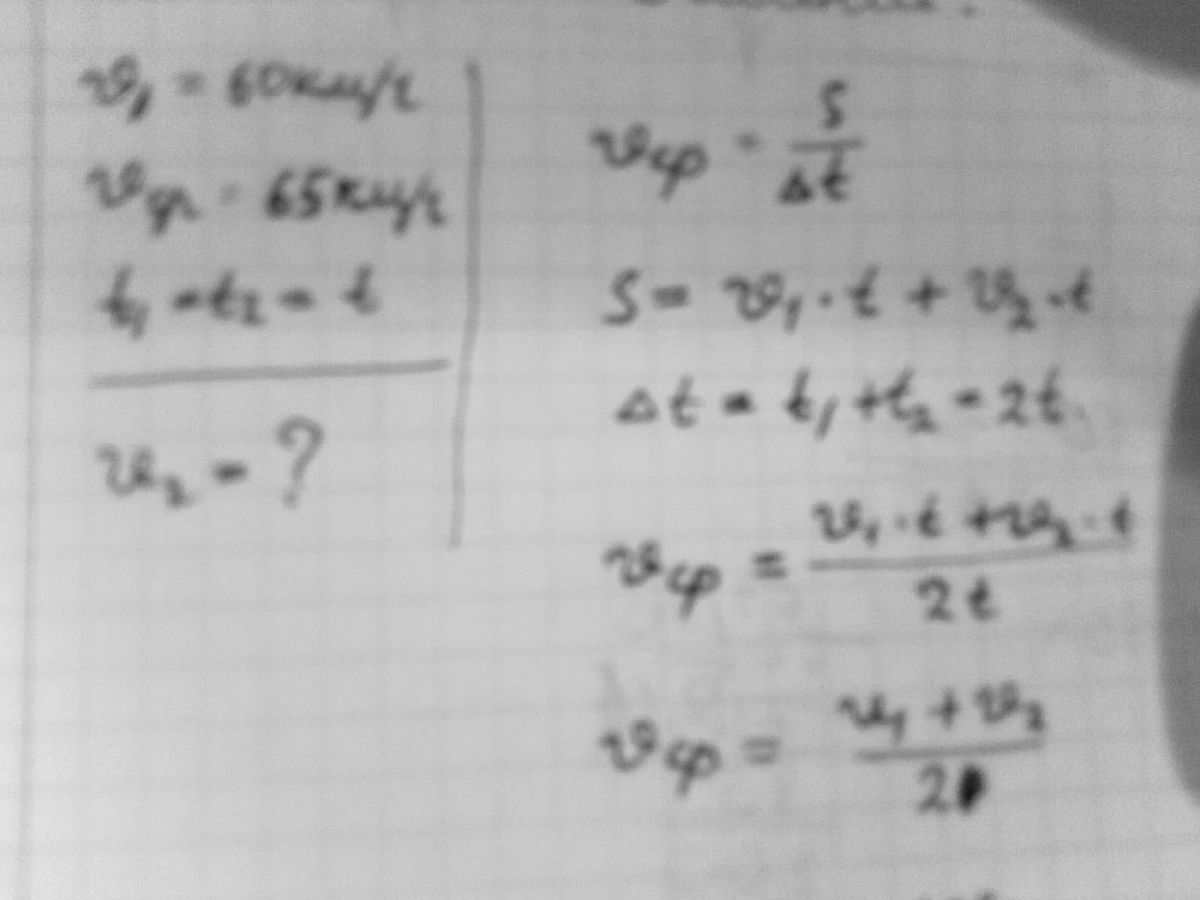 v₁ = 60км/ч
vср = 65км/ч
t₁ = t₂ = t
v₂ = ?
vср = S / Δt
S = v₁ · t + v₂ · t
Δt = t₁ + t₂ = 2t.
vср = (v₁ · t + v₂ · t) / 2t
vср = (v₁ + v₂) / 2